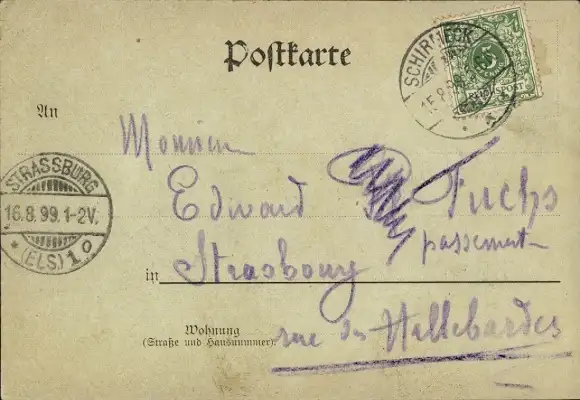 Postkarte
SCHIRMECK
5
POST
An
Monsieur
STRASSBURG
16.8.99.1-2V.
* (ELS) 1 o
Edward Fuchs
passement
in Strasbourg
Wohnung
(Straße und Hausnummer): rue des Hallebardes